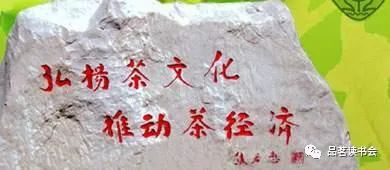 弘杨茶文化
推动茶径济
品茗读书会